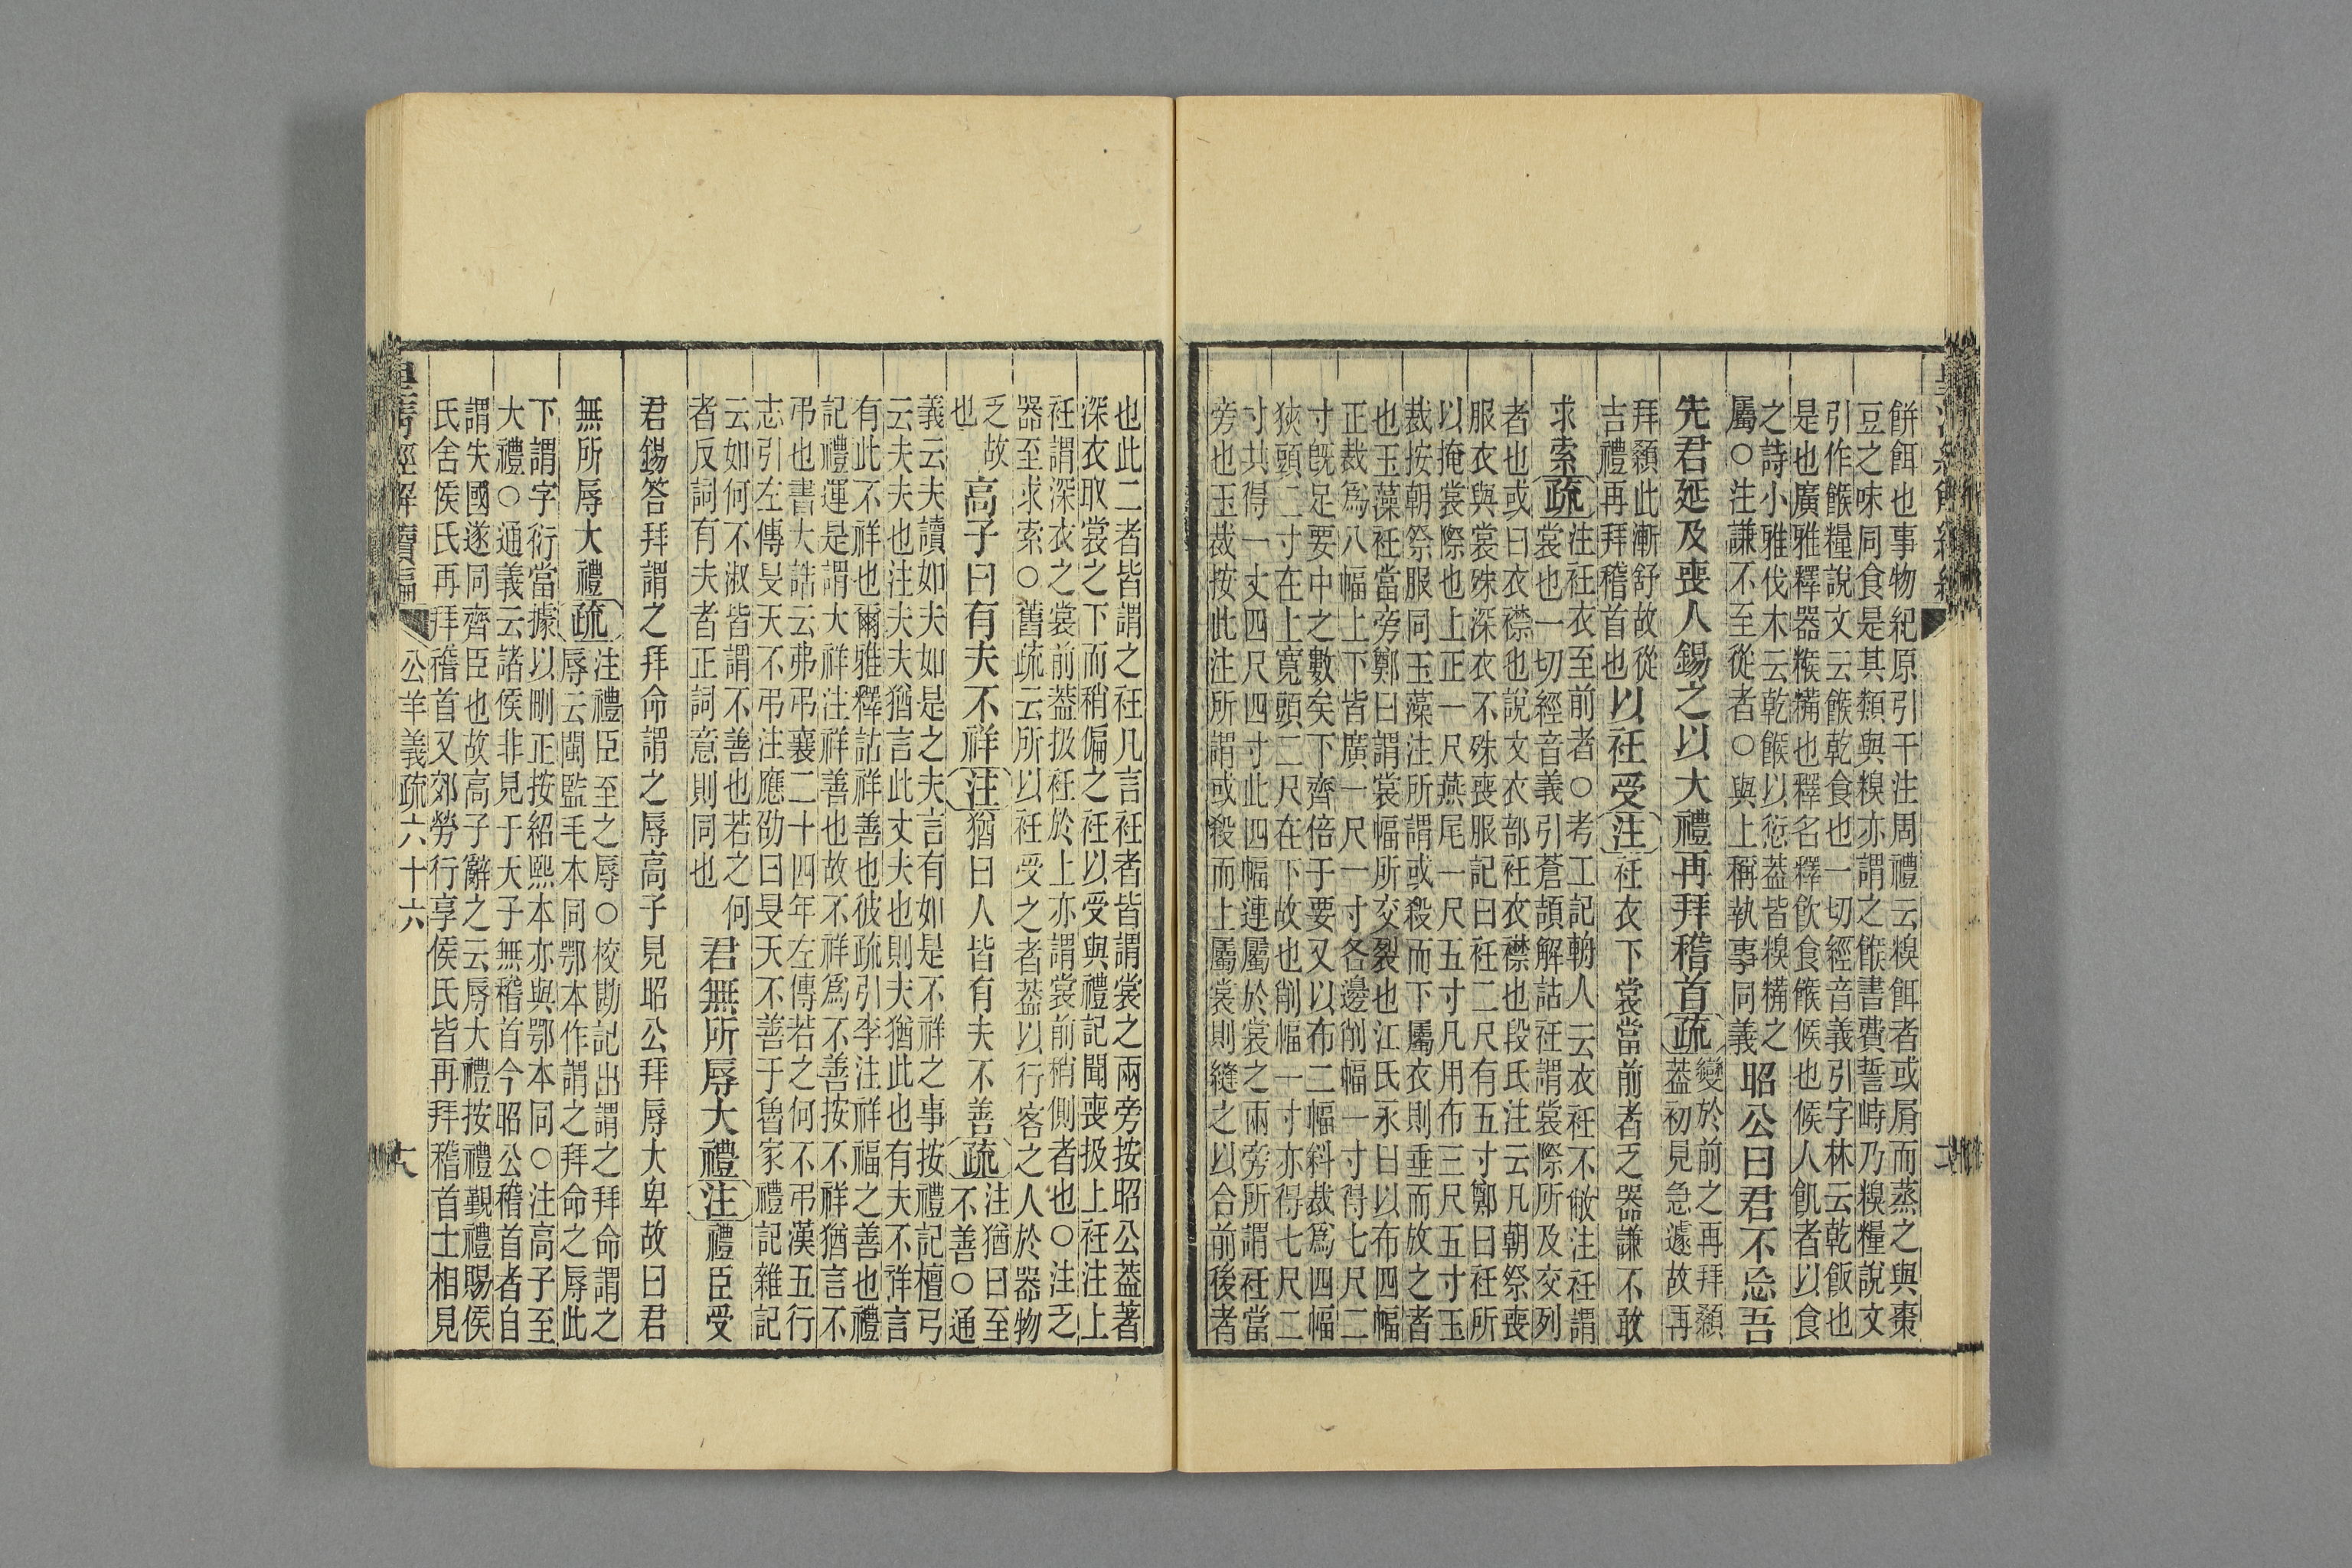 餅餌也事物紀原引干注周禮云糗餌者或屑而蒸之與棗
豆之味同食是其類與糗亦謂之餱書費誓峙乃糗糧說文
引作餱糧說文云餱乾食也一切經音義引字林云乾飯也
是也廣雅釋器糇糒也釋名釋飲食餱候也候人飢者以食
之詩小雅伐木云乾餱以愆葢皆糗糒之
屬○注謙不至從者○與上稱執事同義
昭公曰君不忘吾
先君延及喪人錫之以大禮再拜稽首疏
變於前之再拜顙
葢初見急遽故再
拜顙此漸舒故從
吉禮再拜稽首也
以衽受注衽衣下裳當前者乏器謙不敢
求索疏
注衽衣至前者○考工記輈人云衣衽不敝注衽謂
裳也一切經音義引蒼頡解詁衽謂裳際所及交列
者也或曰衣襟也說文衣部衽衣襟也段氏注云凡朝祭喪
服衣與裳殊深衣不殊喪服記曰衽二尺有五寸鄭曰衽所
以掩裳際也上正一尺燕尾一尺五寸凡用布三尺五寸玉
裁按朝祭服同玉藻注所謂或殺而下屬衣則垂而放之者
也玉藻衽當旁鄭曰謂裳幅所交裂也江氏永曰以布四幅
正裁爲八幅上下皆廣一尺一寸各邊削幅一寸得七尺二
寸旣足要中之數矣下齊倍于要又以布二幅斜裁爲四幅
狹頭二寸在上寬頭二尺在下故也削幅一寸亦得七尺二
寸共得一丈四尺四寸此四幅連屬於裳之兩旁所謂衽當
旁也玉裁按此注所謂或殺而上屬裳則縫之以合前後者
也此二者皆謂之衽凡言衽者皆謂裳之兩旁按昭公葢著
深衣取裳之下而稍偏之衽以受與禮記聞喪扱上衽注上
衽謂深衣之裳前葢扱衽於上亦謂裳前稍側者也○注乏
器至求索○舊疏云所以衽受之者葢以行客之人於器物
乏故
也
高子曰有夫不祥注猶曰人皆有夫不善疏
注猶曰至
不善○通
義云夫讀如夫如是之夫言有如是不祥之事按禮記檀弓
云夫夫也注夫夫猶言此丈夫也則夫猶此也有夫不祥言
有此不祥也爾雅釋詁祥善也彼疏引李注祥福之善也禮
記禮運是謂大祥注祥善也故不祥爲不善按不祥猶言不
弔也書大誥云弗弔襄二十四年左傳若之何不弔漢五行
志引左傳旻天不弔注應劭曰旻天不善于魯家禮記雜記
云如何不淑皆謂不善也若之何
者反詞有夫者正詞意則同也
君無所辱大禮注禮臣受
君錫答拜謂之拜命謂之辱高子見昭公拜辱大卑故曰君
無所辱大禮疏
注禮臣至之辱○校勘記出謂之拜命謂之
辱云閩監毛本同鄂本作謂之拜命之辱此
下謂字衍當據以刪正按紹熙本亦與鄂本同○注高子至
大禮○通義云諸侯非見于天子無稽首今昭公稽首者自
謂失國遂同齊臣也故高子辭之云辱大禮按禮觀禮賜侯
氏舍侯氏再拜稽首又郊勞行享侯氏皆再拜稽首士相見
皇清經解續編
公羊義疏六十六